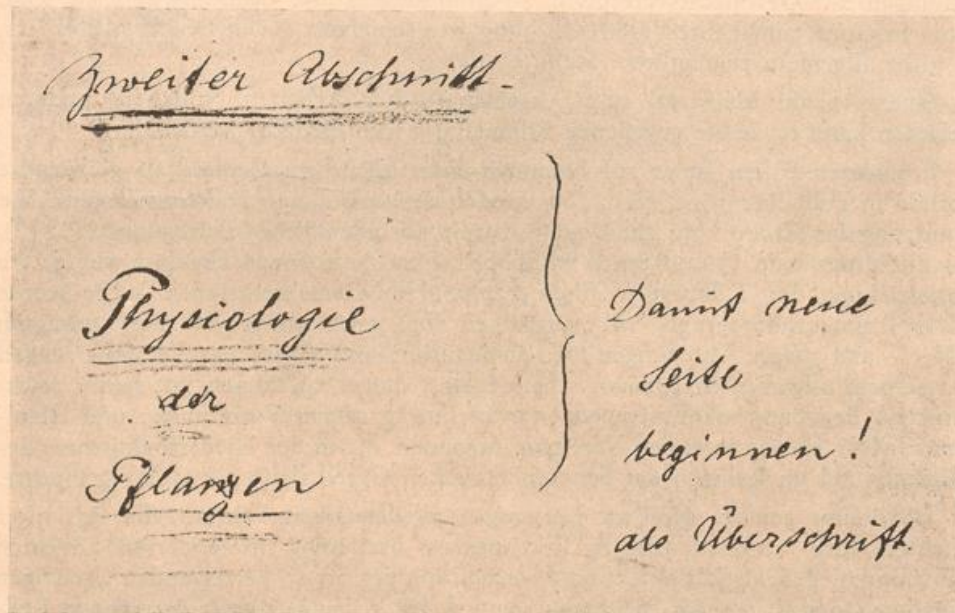 Zweiter Abschnitt.
Physiologie
der
Pflanzen
Damit neue
Seite
beginnen!
als Überschrift.